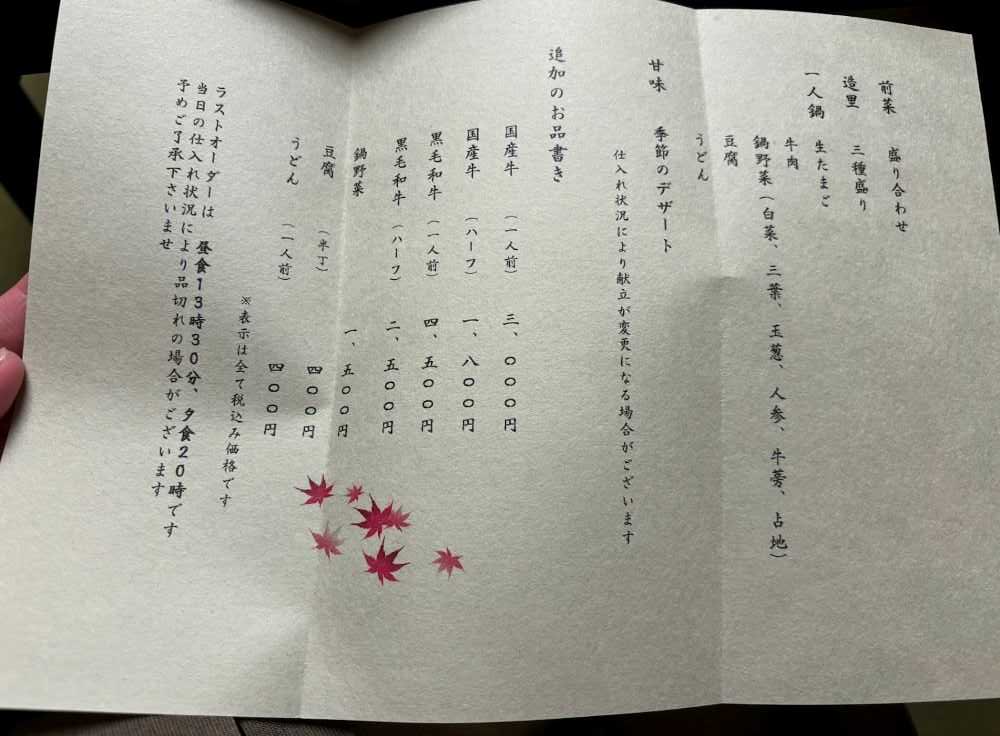 前菜 盛り合わせ
造里 三種盛り
一人鍋 生たまご
牛肉
鍋野菜(白菜、三葉、玉葱、人参、牛蒡、占地)
豆腐
うどん
甘味 季節のデザート
仕入れ状況により献立が変更になる場合がございます
追加のお品書き
国産牛 (一人前) 三、〇〇〇円
国産牛 (ハーフ) 一、八〇〇円
黒毛和牛 (一人前) 四、五〇〇円
黒毛和牛 (ハーフ) 二、五〇〇円
鍋野菜 一、五〇〇円
豆腐 (半丁) 四〇〇円
うどん (一人前) 四〇〇円
※表示は全て税込み価格です
ラストオーダーは 昼食13時30分、夕食20時です
当日の仕入れ状況により品切れの場合がございます
予めご了承下さいませ